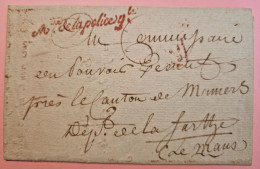 Min. de la police g.le
Au Commissaire
du Pouvoir Exécutif
près le Canton de Mamers
Dép.t de la Sarthe
(Le Mans